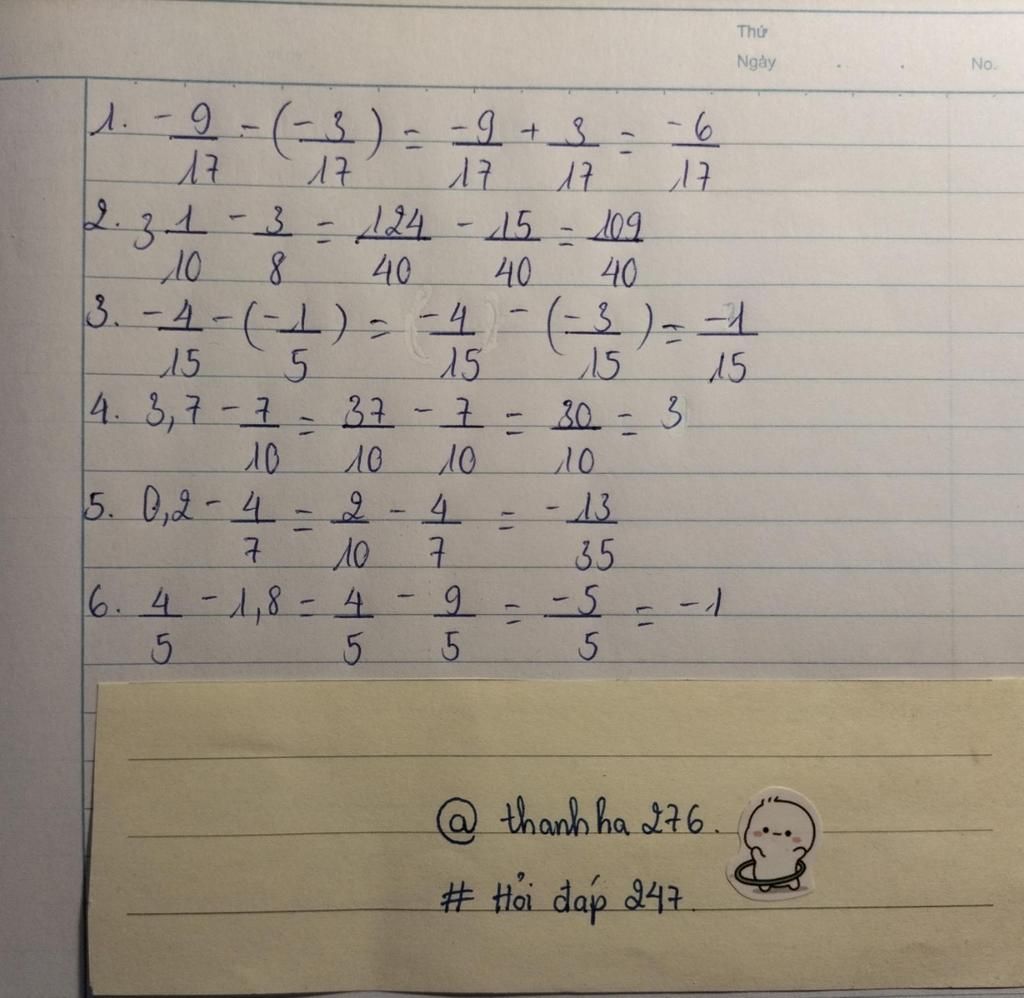 Thứ
Ngày . . No.
1. -9/17 - (-3/17) = -9/17 + 3/17 = -6/17
2. 3 1/10 - 3/8 = 124/40 - 15/40 = 109/40
3. -4/15 - (-1/5) = -4/15 - (-3/15) = -1/15
4. 3,7 - 7/10 = 37/10 - 7/10 = 30/10 = 3
5. 0,2 - 4/7 = 2/10 - 4/7 = -13/35
6. 4/5 - 1,8 = 4/5 - 9/5 = -5/5 = -1
@ thanhha 276.
# Hỏi đáp 247.